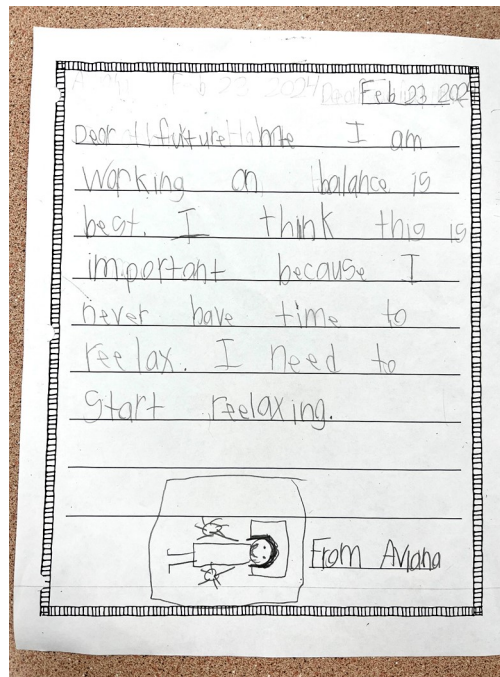 Feb 23 202
Dear future me I am
working on balance is
best. I think this is
important because I
never have time to
reelax. I need to
start reelaxing.
From Aviana